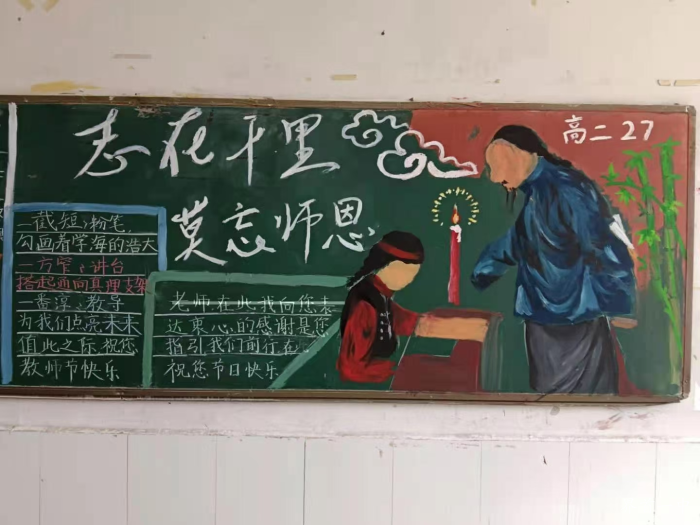 志在千里
莫忘师恩
高二27
一截短短粉笔,
勾画着学海的浩大
一方窄窄讲台
搭起通向真理支架
一番淳淳教导
为我们点亮未来
值此之际,祝您
教师节快乐
老师,在此我向您表
达衷心的感谢是您
指引我们前行在此
祝您节日快乐